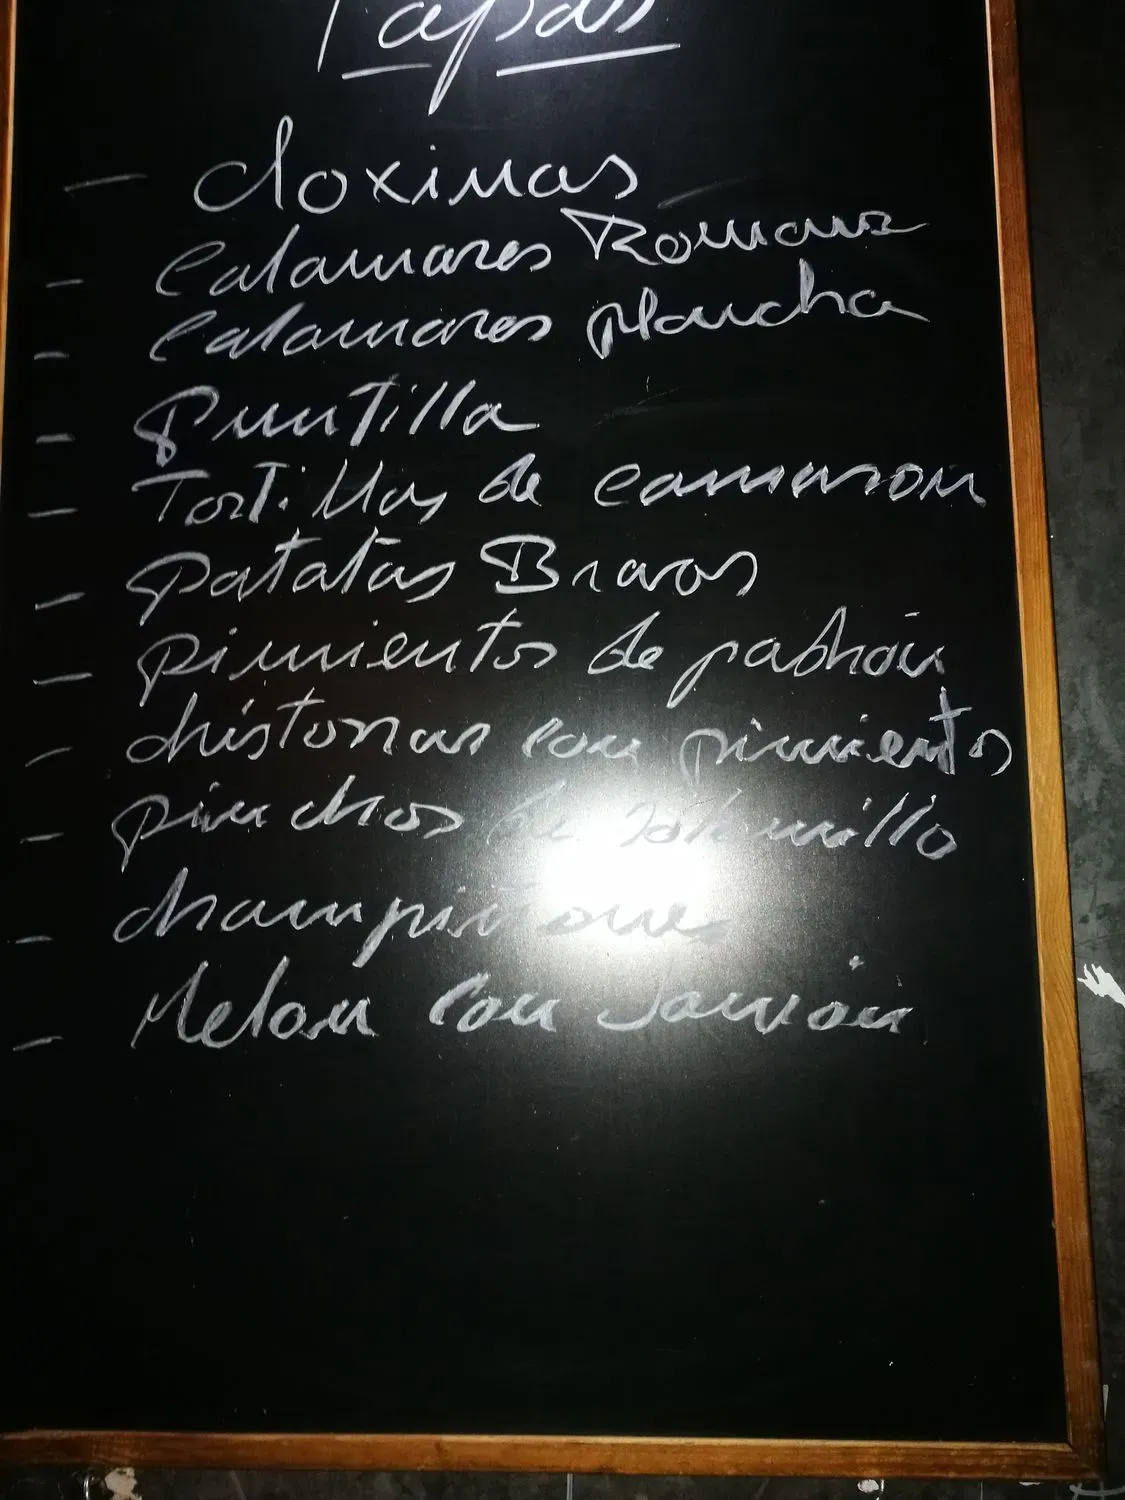 Tapas
- cloxinas
- Calamares Romana
- Calamares plancha
- Puntilla
- Tortillas de camaron
- patatas Bravas
- pimientos de padrón
- chistorras con pimientos
- pinchos de solomillo
- champiñones
- Melon con Jamón